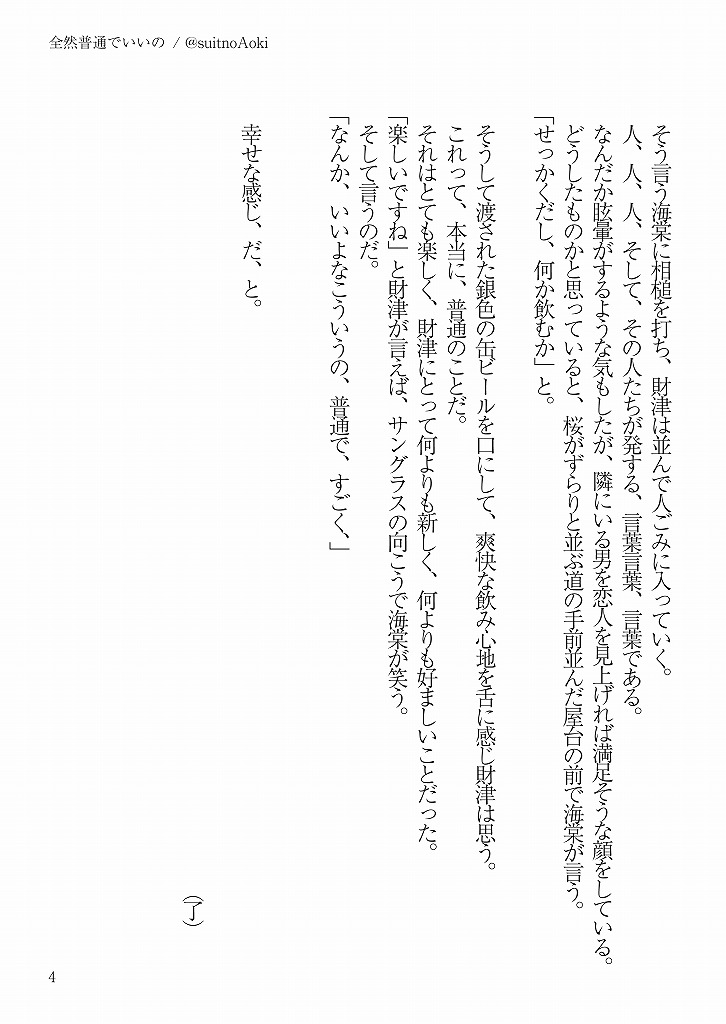 全然普通でいいの / @suitnoAoki
そう言う海棠に相槌を打ち、財津は並んで人ごみに入っていく。
人、人、人、そして、その人たちが発する、言葉言葉、言葉である。
なんだか眩暈がするような気もしたが、隣にいる男を恋人を見上げれば満足そうな顔をしている。
どうしたものかと思っていると、桜がずらりと並ぶ道の手前並んだ屋台の前で海棠が言う。
「せっかくだし、何か飲むか」と。
そうして渡された銀色の缶ビールを口にして、爽快な飲み心地を舌に感じ財津は思う。
これって、本当に、普通のことだ。
それはとても楽しく、財津にとって何よりも新しく、何よりも好ましいことだった。
「楽しいですね」と財津が言えば、サングラスの向こうで海棠が笑う。
そして言うのだ。
「なんか、いいよなこういうの、普通で、すごく、」
幸せな感じ、だ、と。
（了）
4